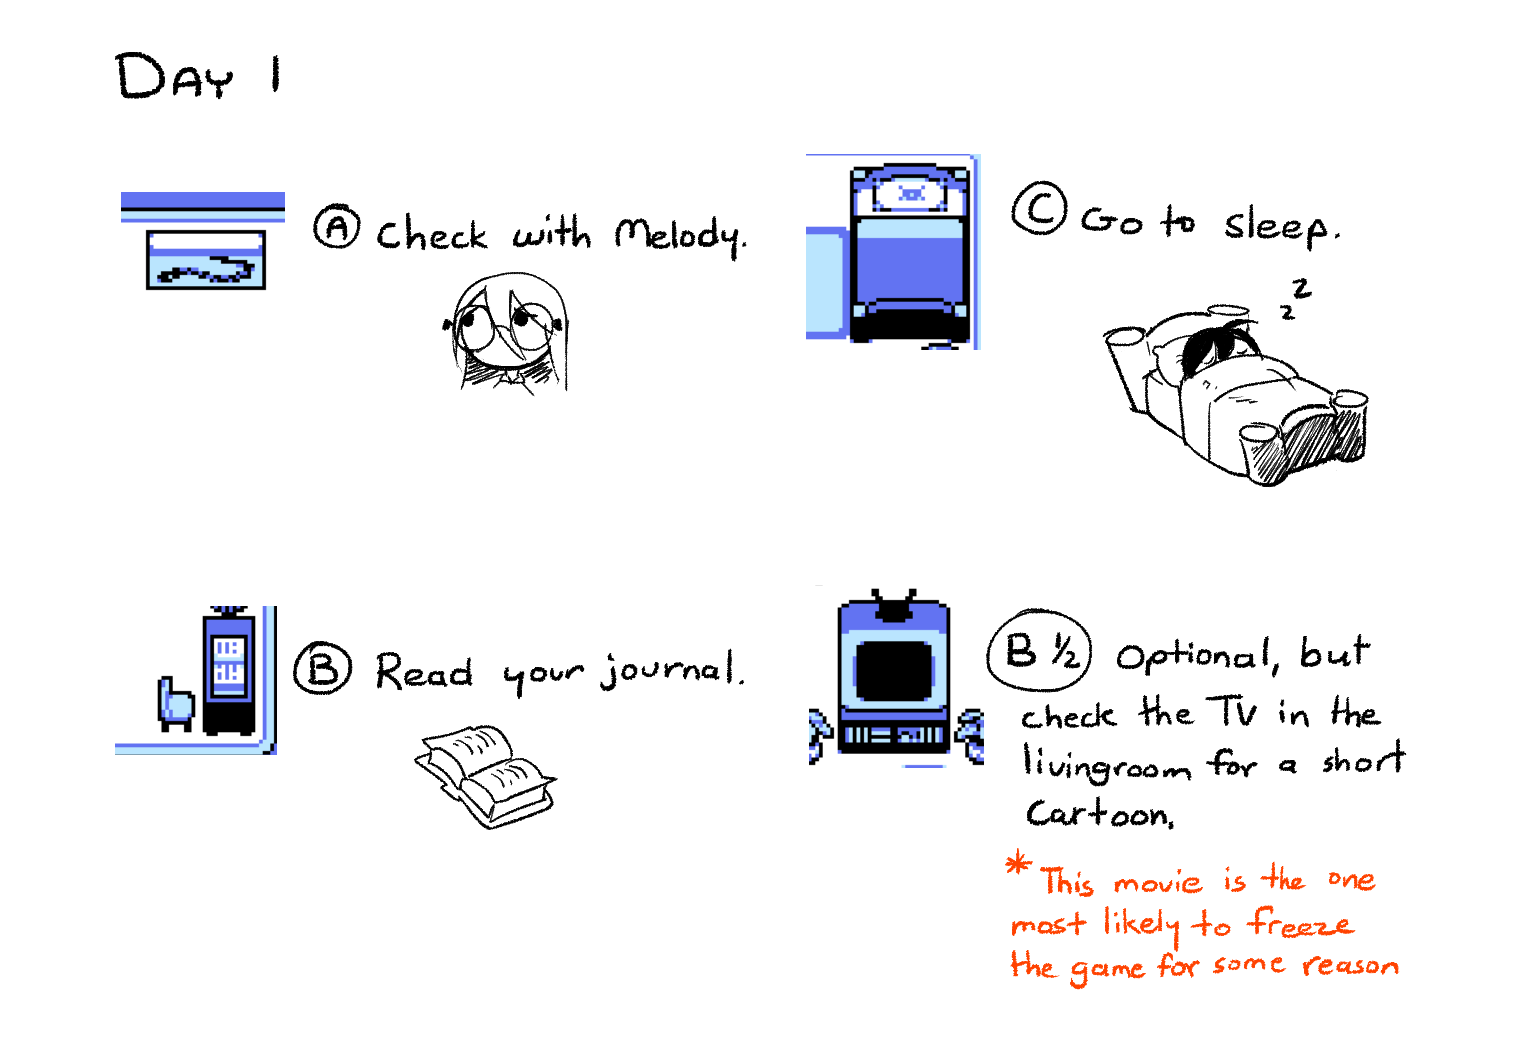 DAY 1
A Check with Melody.
B Read your journal.
C Go to sleep.
z z
B ½ Optional, but
check the TV in the
livingroom for a short
cartoon.
* This movie is the one
most likely to freeze
the game for some reason